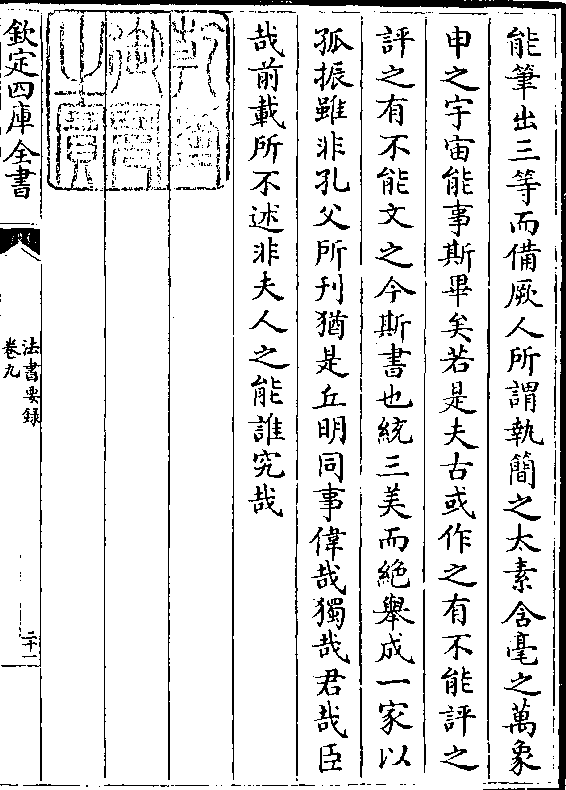 能筆出三等而備厥人所謂執簡之太素含毫之萬象
申之宇宙能事斯畢矣若是夫古或作之有不能評之
評之有不能文之今斯書也統三美而絕舉成一家以
孤振雖非孔父所刊猶是丘明同事偉哉獨哉君哉臣
哉前載所不述非夫人之能誰究哉
乾隆御覽之寶
欽定四庫全書
法書要錄
卷九
二十二